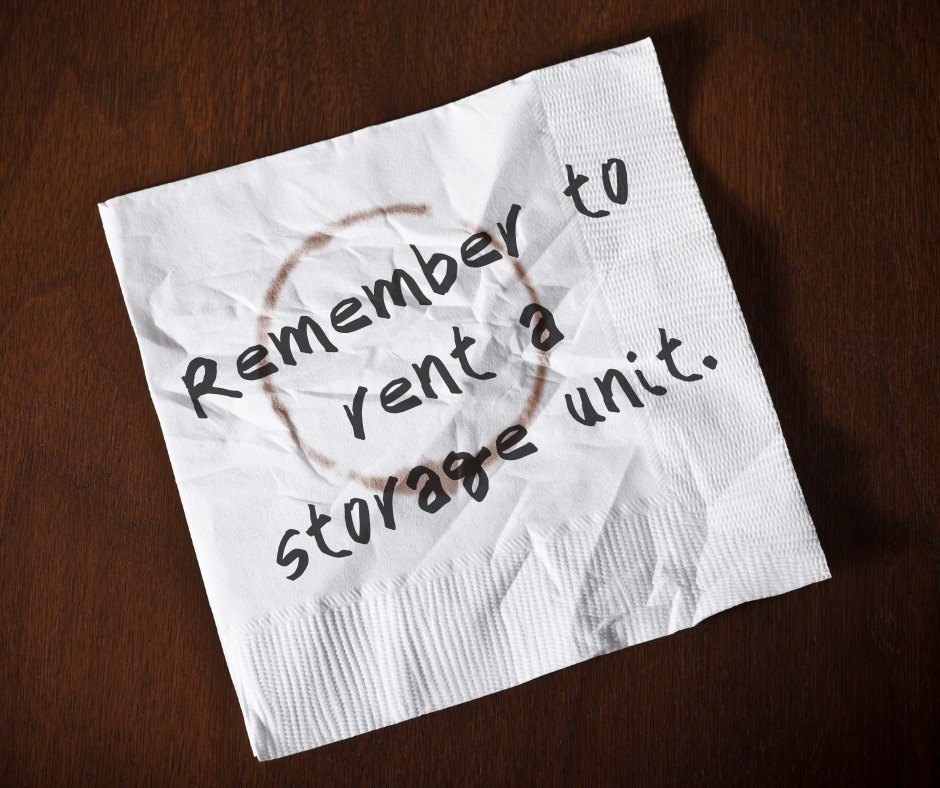 Remember to
rent a
storage unit.